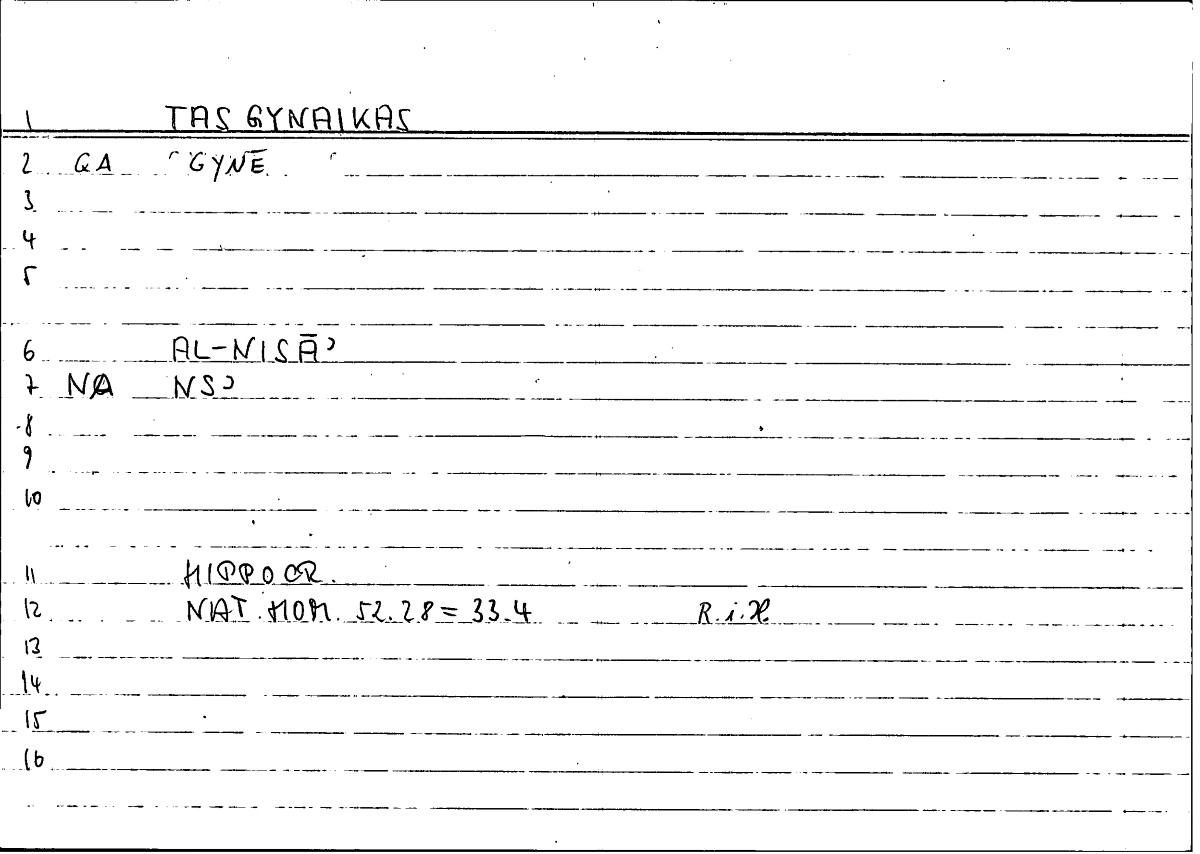 1 TAS GYNAIKAS
2 GA "GYNĒ '
3
4
5
6 AL-NISĀʾ
7 NA NSʾ
8
9
10
11 HIPPOCR.
12 NAT. HOM. 52.28 = 33.4
13
14
15
16